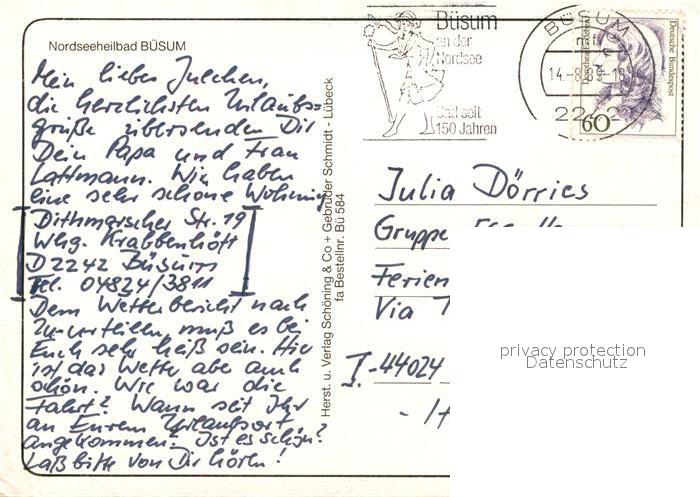 Nordseeheilbad BÜSUM
Mein liebes Julchen,
die herzlichsten Urlaubs-
grüße übersenden Dir
Dein Papa und Frau
Lattmann. Wir haben
eine sehr schöne Wohnung
Dithmarscher Str. 19
Whg. Krabbenhöft
D 2242 Büsum
Tel. 04834/3811
Dem Wetterbericht nach
zu urteilen, muß es bei
Euch sehr heiß sein. Hier
ist das Wetter aber auch
schön. Wie war die
Fahrt? Wann seit Ihr
an Eurem Urlaubsort
angekommen? Ist es schön?
Laß bitte von Dir hören!
Herst. u. Verlag Schöning & Co + Gebrüder Schmidt - Lübeck
fa Bestellnr. Bü 584
Büsum
an der
Nordsee
Bad seit
150 Jahren
BÜSUM
14.-8.89-18
22
Deutsche Bundespost
60
Julia Dörries
Gruppe
Ferien
Via
I-44024
privacy protection
Datenschutz